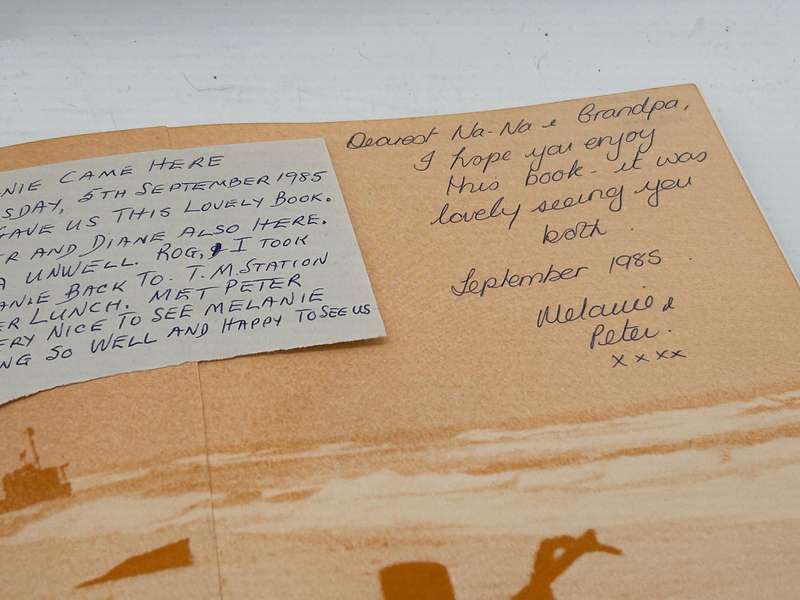 NIE CAME HERE
SDAY, 5TH SEPTEMBER 1985
GAVE US THIS LOVELY BOOK.
ER AND DIANE ALSO HERE.
A UNWELL. ROG, & I TOOK
ANIE BACK TO T.M. STATION
ER LUNCH. MET PETER
ERY NICE TO SEE MELANIE
NG SO WELL AND HAPPY TO SEE US
Dearest Na-Na & Grandpa,
I hope you enjoy
this book - it was
lovely seeing you
both.
September 1985.
Melanie &
Peter.
xxxx